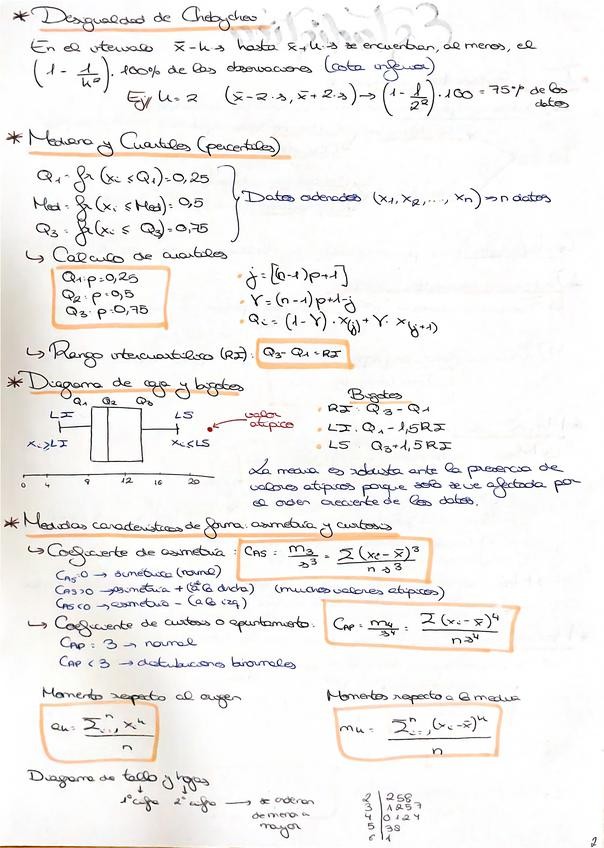 * Desigualdad de Chebychev
En el intervalo x̄-k·s hasta x̄+k·s se encuentran, al menos, el
(1 - 1/k²)·100% de las observaciones (cota inferior)
Ej/ k=2 (x̄-2·s, x̄+2·s) → (1 - 1/2²)·100 = 75% de los datos
* Mediana y Cuartiles (percentiles)
Q₁ = fr (xᵢ ≤ Q₁) = 0,25
Med = fr (xᵢ ≤ Med) = 0,5
Q₃ = fr (xᵢ ≤ Q₃) = 0,75
Datos ordenados (x₁, x₂, ..., xₙ) → n datos
↳ Calculo de cuartiles
Q₁: p=0,25
Q₂: p=0,5
Q₃: p=0,75
• j = [(n-1)p+1]
• γ = (n-1)p+1-j
• Qᵢ = (1-γ)·x(j) + γ·x(j+1)
↳ Rango intercuartílico (RI): Q₃-Q₁=RI
* Diagrama de caja y bigotes
Q₁ Q₂ Q₃
LI LS
valor atípico
xᵢ≥LI xᵢ≤LS
0 4 8 12 16 20
Bigotes
• RI: Q₃-Q₁
• LI: Q₁-1,5RI
• LS: Q₃+1,5RI
La media es robusta ante la presencia de
valores atípicos porque solo se ve afectada por
el orden creciente de los datos.
* Medidas características de forma: asimetría y curtosis
↳ Coeficiente de asimetría: CAS = m₃/s³ = Σ(xᵢ-x̄)³/n s³
CAS=0 → simétrica (normal)
CAS>0 → asimetría + (a la dcha) (muchos valores atípicos)
CAS<0 → asimetría - (a la izq)
↳ Coeficiente de curtosis o apuntamiento: CAP = m₄/s⁴ = Σ(xᵢ-x̄)⁴/n s⁴
CAP = 3 → normal
CAP < 3 → distribuciones bimodales
Momento respecto al origen
aₖ = Σⁿᵢ₌₁ xᵏ/n
Momentos respecto a la media
mₖ = Σⁿᵢ₌₁ (xᵢ-x̄)ᵏ/n
Diagrama de tallo y hojas
1ª cifra 2ª cifra → se ordenan
de menor a
mayor
2 | 258
3 | 1257
4 | 0124
5 | 38
6 | 1
2